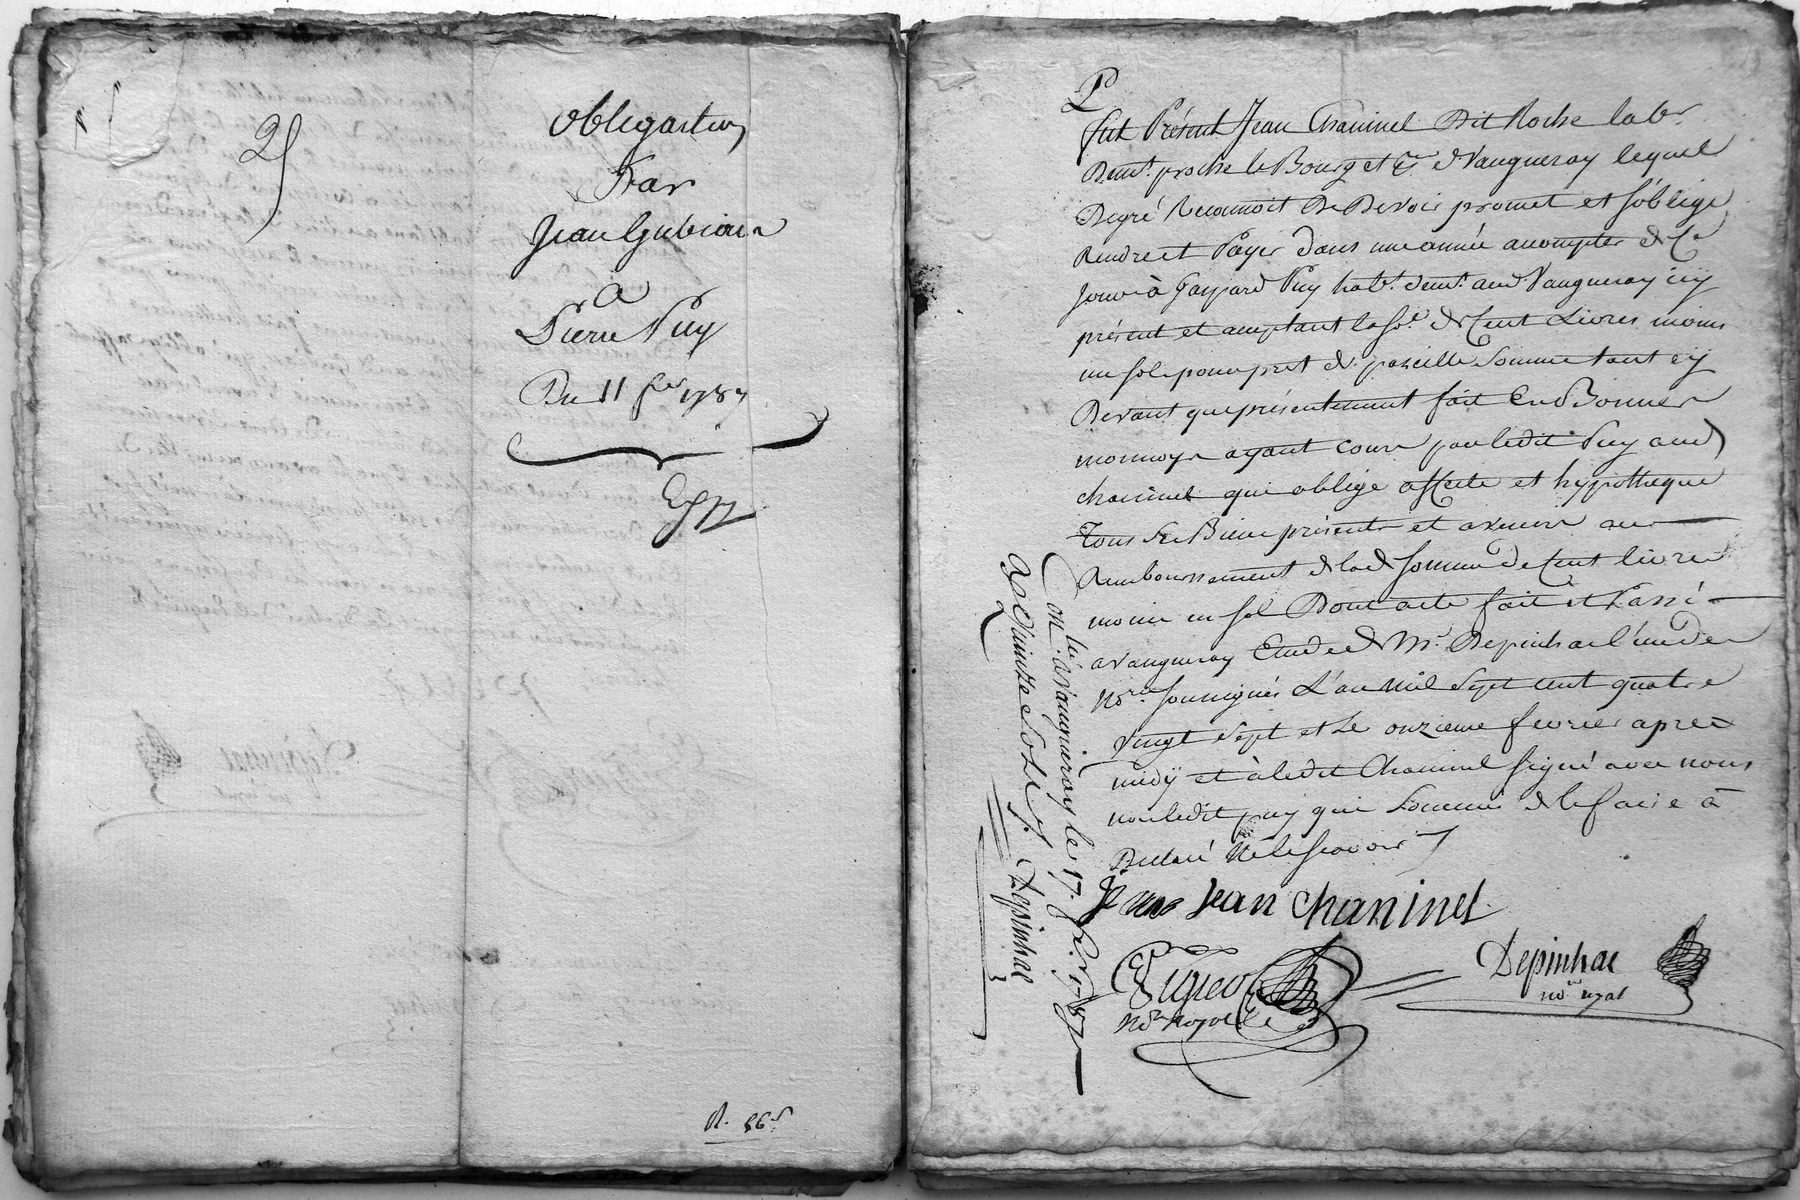 25
obligation
Par
Jean Gubian
a
Pierre Puy
Du 11 fer 1787
Exp
R. 56s
P
fut Présent Jean Chaninel Dit Roche labr
Demt. proche le Bourg et pse de Vaugneray lequel
De gré Reconnoit De Devoir promet et s'oblige
Rendre et Payer dans une année a compter de Ce
Jour à Gaspard Puy habt. demt. aud. Vaugneray icy
présent et acceptant la Se. de Cent Livres moins
un sol pour pret de pareille somme tant cy
Devant que présentement fait En Bonnes
monnoye ayant cours par ledit Puy aud
chaninel qui oblige affecte et hypotheque
Tous Ses Biens présents et avenir au
Remboursement de lad somme de Cent livres
moins un sol Dont acte fait et Passé
a Vaugneray Etude de Me. Depinhac l'un des
Nores. soussignés L'an Mil Sept cent quatre
vingt Sept et Le onzieme fevrier apres
midÿ et à ledit Chaninel signé avec nous
non ledit puy qui Sommé de le faire à
Declaré Ne le Scavoir
Jean chaninel
Nore Royal
Depinhac
nore royal
Clé. a Vaugneray le 17. fer. 1787
Rx Quinze Sols Depinhac